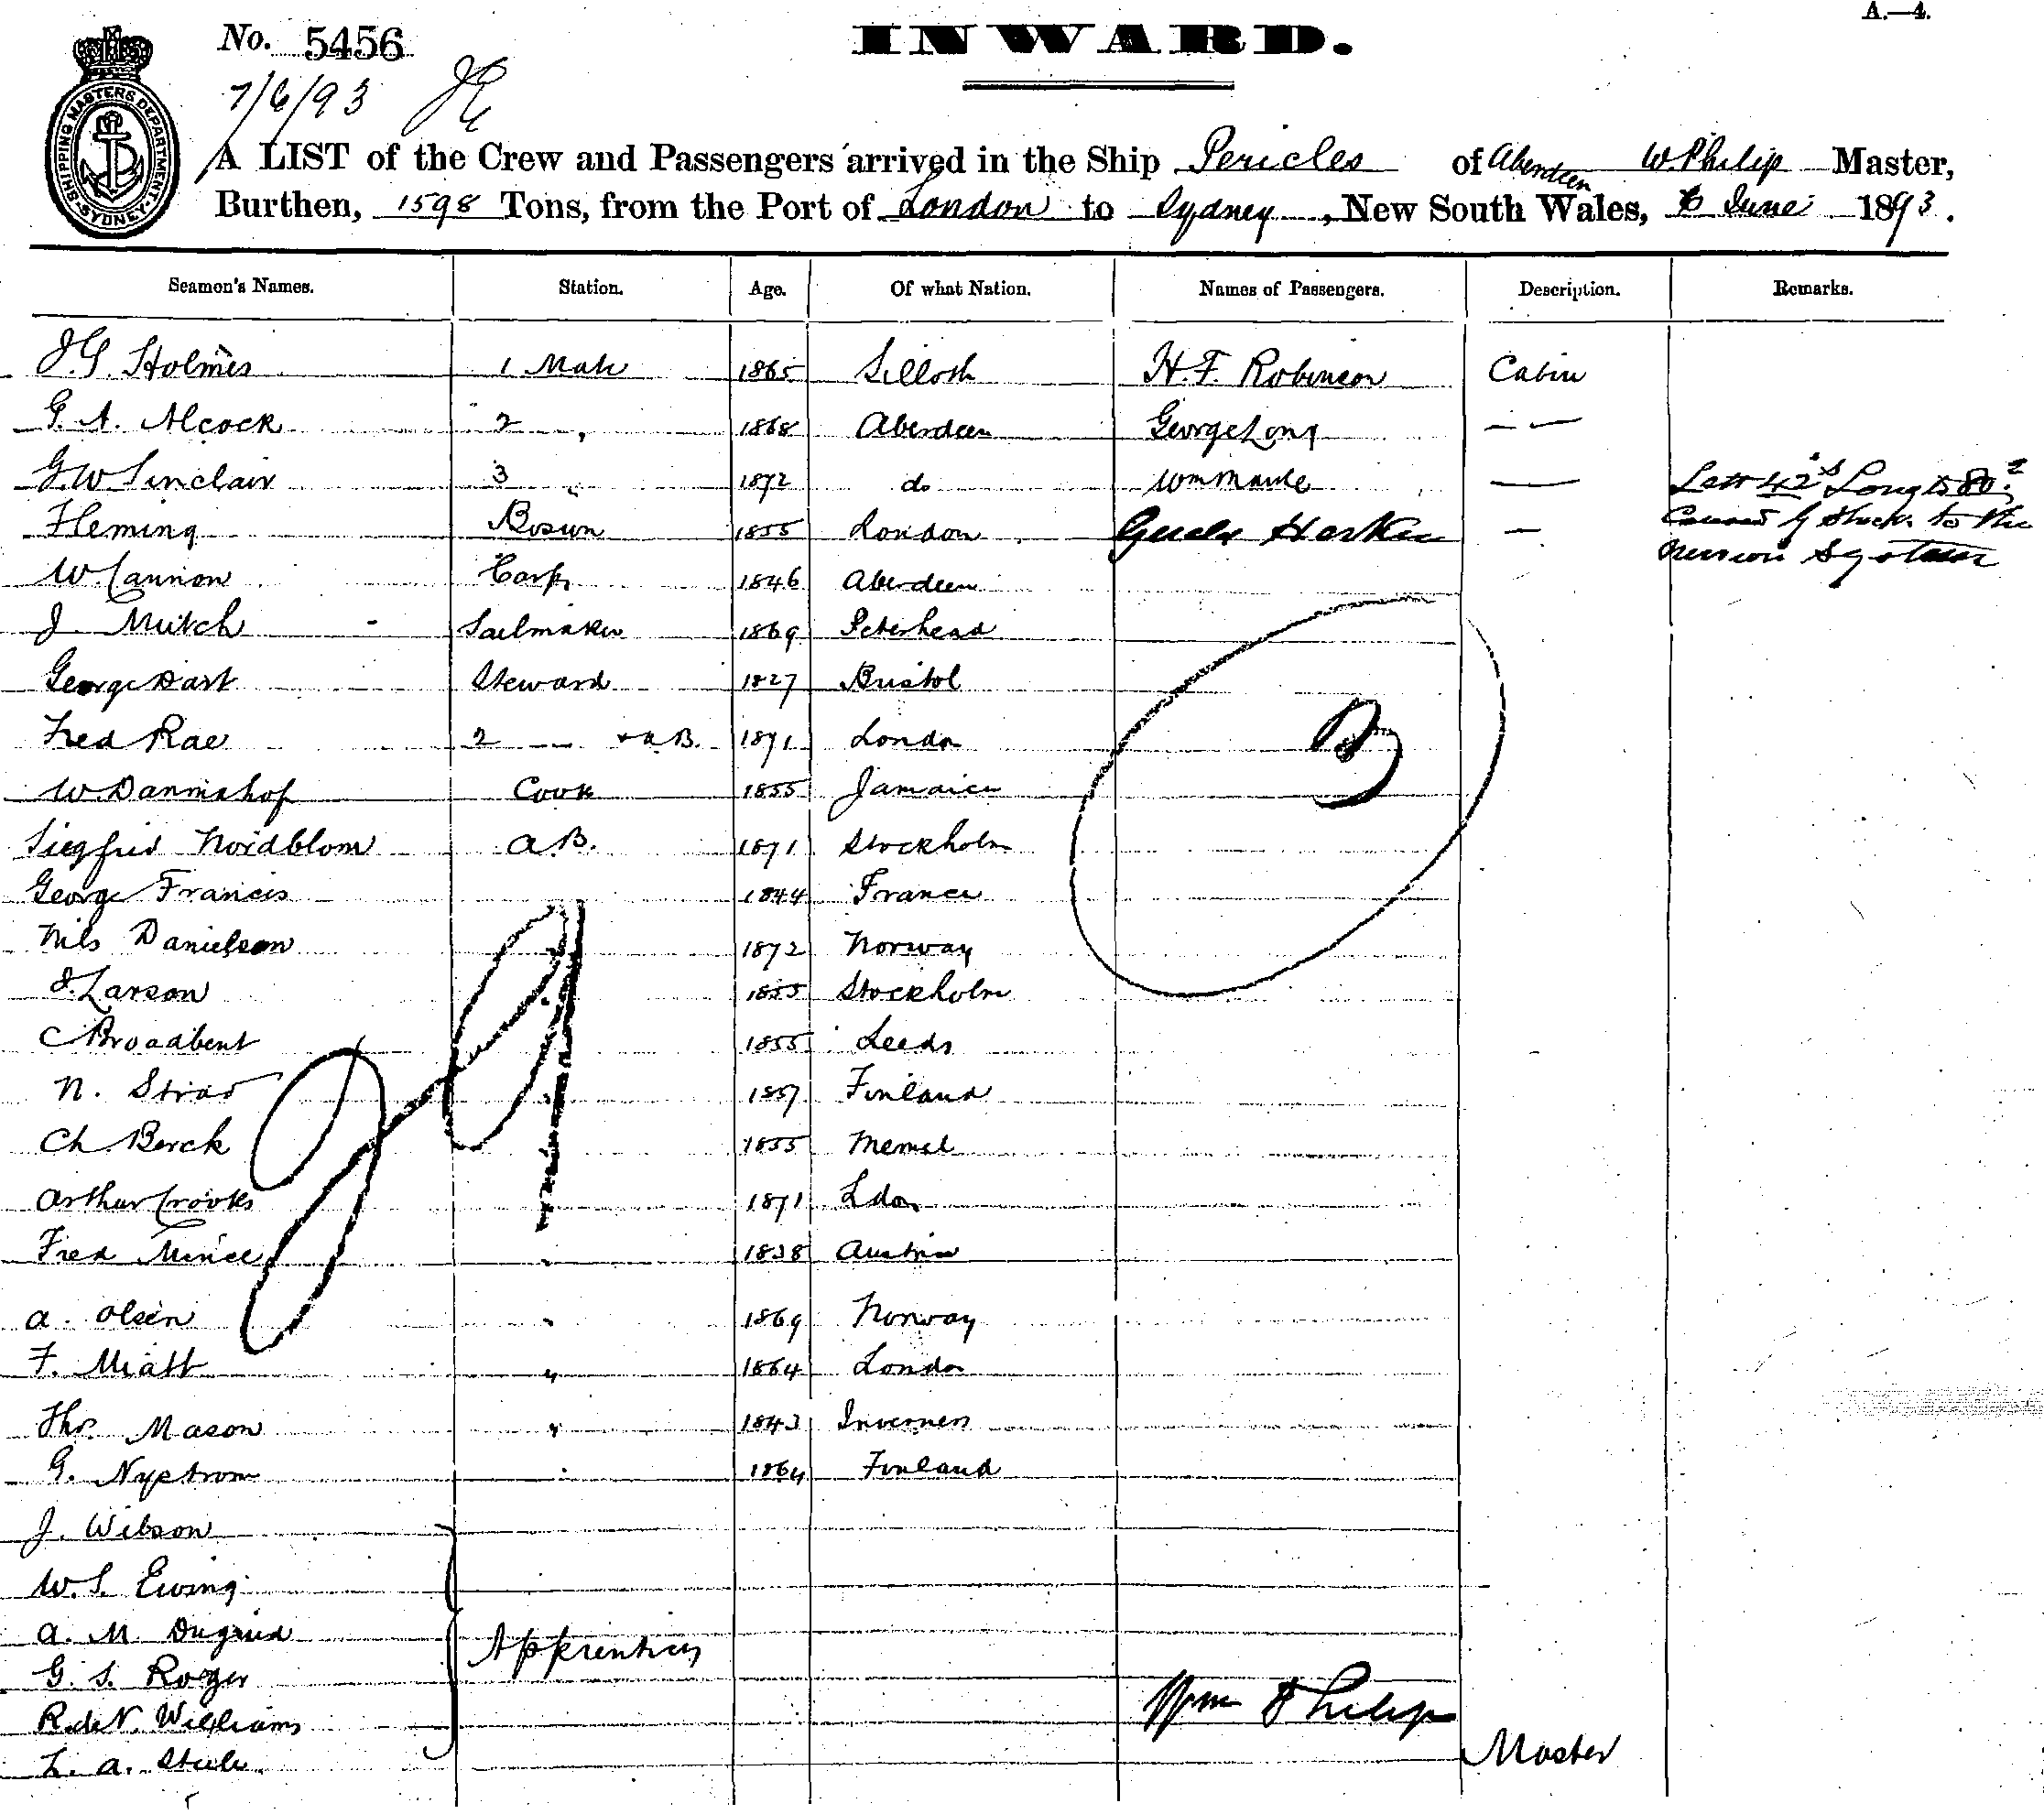 A.—4.
No. 5456
INWARD.
7/6/93
SHIPPING MASTERS DEPARTMENT SYDNEY
A LIST of the Crew and Passengers arrived in the Ship Pericles of Aberdeen W. Philip Master,
Burthen, 1598 Tons, from the Port of London to Sydney, New South Wales, 6 June 1893.
Seamen's Names. Station. Age. Of what Nation. Names of Passengers. Description. Remarks.
J.G. Holmes 1 Mate 1865 Silloth H.F. Robinson Cabin
G.A. Alcock 2 " 1868 Aberdeen George Long —
G.W. Sinclair 3 " 1872 do Wm —
Fleming Bosun 1855 London —
W. Cannon Carp 1846 Aberdeen
to the
J. Mutch Sailmaker 1869 Peterhead
George Dart Steward 1827 Bristol
Fred Rae 2 — + A.B. 1871 London
W. Cook 1855 Jamaica
Siegfrid Nordblom A.B. 1871 Stockholm
George Francis 1844 France
Nils Danielson 1872 Norway
J. Larson 1855 Stockholm
C Broadbent 1855 Leeds
N. 1857 Finland
Ch. Berck 1855 Memel
Arthur Crooks 1871 Ldon
Fred 1838 Austria
A. Olsen " 1869 Norway
F. Miatt " 1864 London
Thos. Mason " 1843 Inverness
G. Nystrom " 1864 Finland
J. Wilson
W.S. Ewing
A. M. Duguid
Apprentices
G. S. Roger
R.de N. Williams
Wm Philip
L. A. Steele
Master